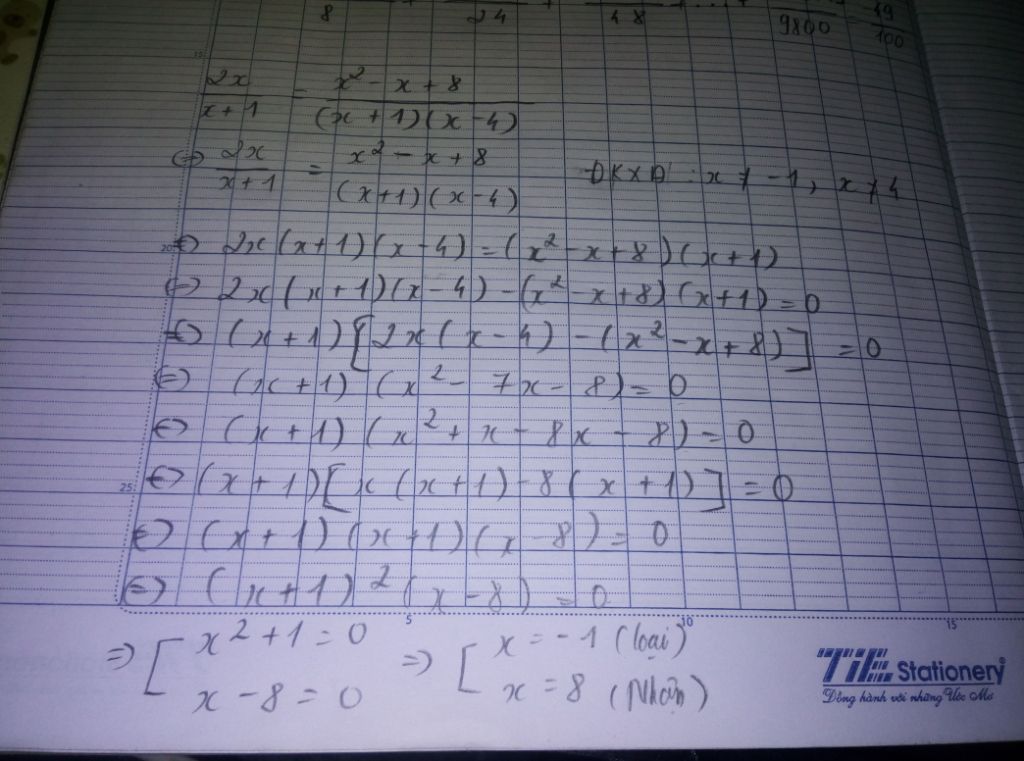 8 + 24 + 48 + ... + 9800 = 49/100
2x/(x+1) = (x² - x + 8)/((x+1)(x-4))
⇔ 2x/(x+1) = (x² - x + 8)/((x+1)(x-4)) ĐKXĐ: x ≠ -1, x ≠ 4
20 ⇔ 2x(x+1)(x-4) = (x² - x + 8)(x+1)
⇔ 2x(x+1)(x-4) - (x² - x + 8)(x+1) = 0
⇔ (x+1)[2x(x-4) - (x² - x + 8)] = 0
⇔ (x+1)(x² - 7x - 8) = 0
⇔ (x+1)(x² + x - 8x - 8) = 0
25 ⇔ (x+1)[x(x+1) - 8(x+1)] = 0
⇔ (x+1)(x+1)(x-8) = 0
⇔ (x+1)²(x-8) = 0
5 10 15
⇒ [ x² + 1 = 0 ⇒ [ x = -1 (loại)
x - 8 = 0 x = 8 (Nhận)
TiTi Stationery
Đồng hành với những Ước Mơ